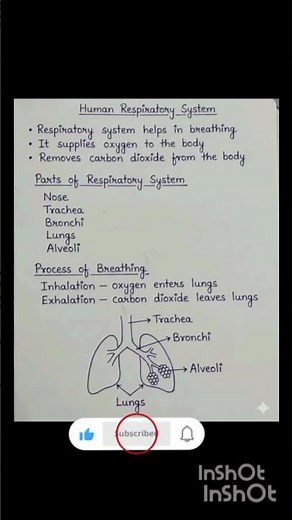 Human Respiratory System
• Respiratory system helps in breathing
• It supplies oxygen to the body
• Removes carbon dioxide from the body
Parts of Respiratory System
Nose
Trachea
Bronchi
Lungs
Alveoli
Process of Breathing
Inhalation — oxygen enters lungs
Exhalation — carbon dioxide leaves lungs
Trachea
Bronchi
Alveoli
Lungs
Subscribed
InShOt
InShOt